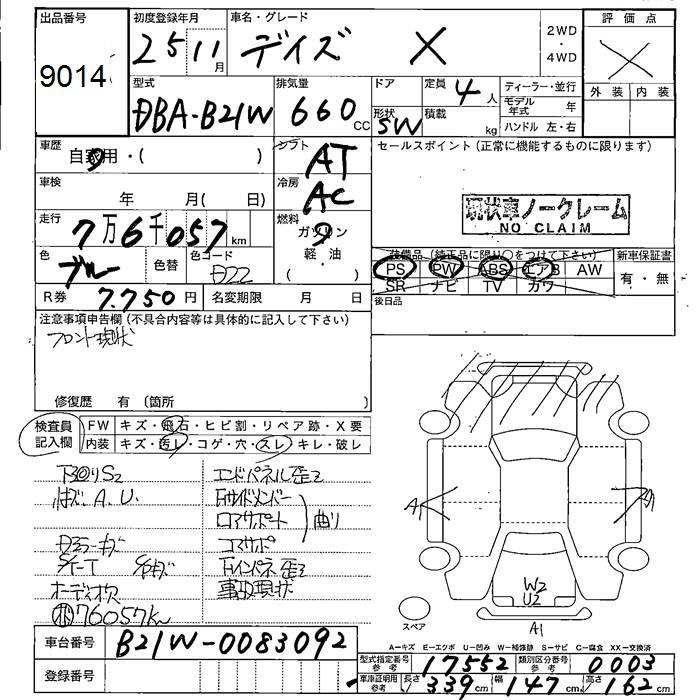 出品番号
9014
初度登録年月
25 11 月
車名・グレード
デイズ X
2WD
・
4WD
評価点
外装 内装
型式
DBA-B21W
排気量
660 CC
ドア
形状
SW
定員
4 人
積載
kg
ディーラー・並行
モデル年式 年
ハンドル 左・右
車歴
自家用・( )
シフト
AT
セールスポイント (正常に機能するものに限ります)
現状車ノークレーム
NO CLAIM
車検
年 月( 日)
冷房
AC
走行
7万6千057 km
燃料
ガソリン
軽・油
( )
色
ブルー
色替
色コード
R券 7.750 円
名変期限 月 日
装備品 (純正品に限り○をつけて下さい)
PS PW ABS エアB AW
SR ナビ TV カワ
新車保証書
有・無
後日品
注意事項申告欄 (不具合内容等は具体的に記入して下さい)
フロント現状
修復歴 有 (箇所
検査員
記入欄
FW キズ・飛石・ヒビ割・リペア跡・X要
内装 キズ・汚レ・コゲ・穴・スレ・キレ・破レ
下回りS2
エンドパネル歪ミ
A.U.
Fサイドメンバー
ロアサポート
曲り
コアサポ
Fインパネ歪ミ
オーディオ欠
事故現状
76057km
A
W2
U2
A1
スペア
車台番号 B21W-0083092
登録番号
A—キズ E—エクボ U—凹み W—補修跡 S—サビ C—腐食 XX—交換済
型式指定番号 参考 17552
類別区分番号 参考 0003
車庫証明用 参考 長さ 339 cm 幅 147 cm 高さ 162 cm